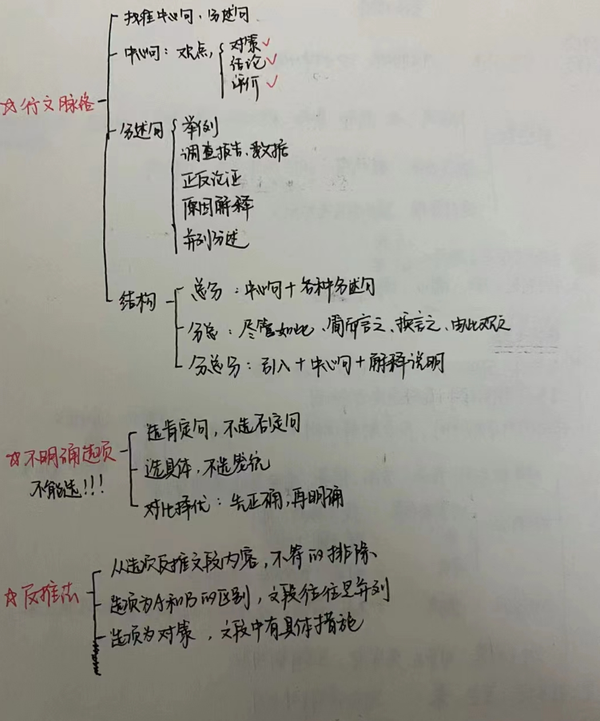 找准中心句、分述句
中心句：观点 { 对策✓
结论✓
评价✓
☆行文脉络
分述句 { 举例
调查报告、数据
正反论证
原因解释
并列分述
结构
总分：中心句+各种分述句
分总：尽管如此、简而言之、换言之、由此观之
分总分：引入+中心句+解释说明
☆不明确选项
不能选!!!
选肯定句，不选否定句
选具体，不选笼统
对比择优：先正确，再明确
☆反推法
从选项反推文段内容，不符的排除
选项为A和B的区别，文段往往是并列
选项为对策，文段中有具体措施